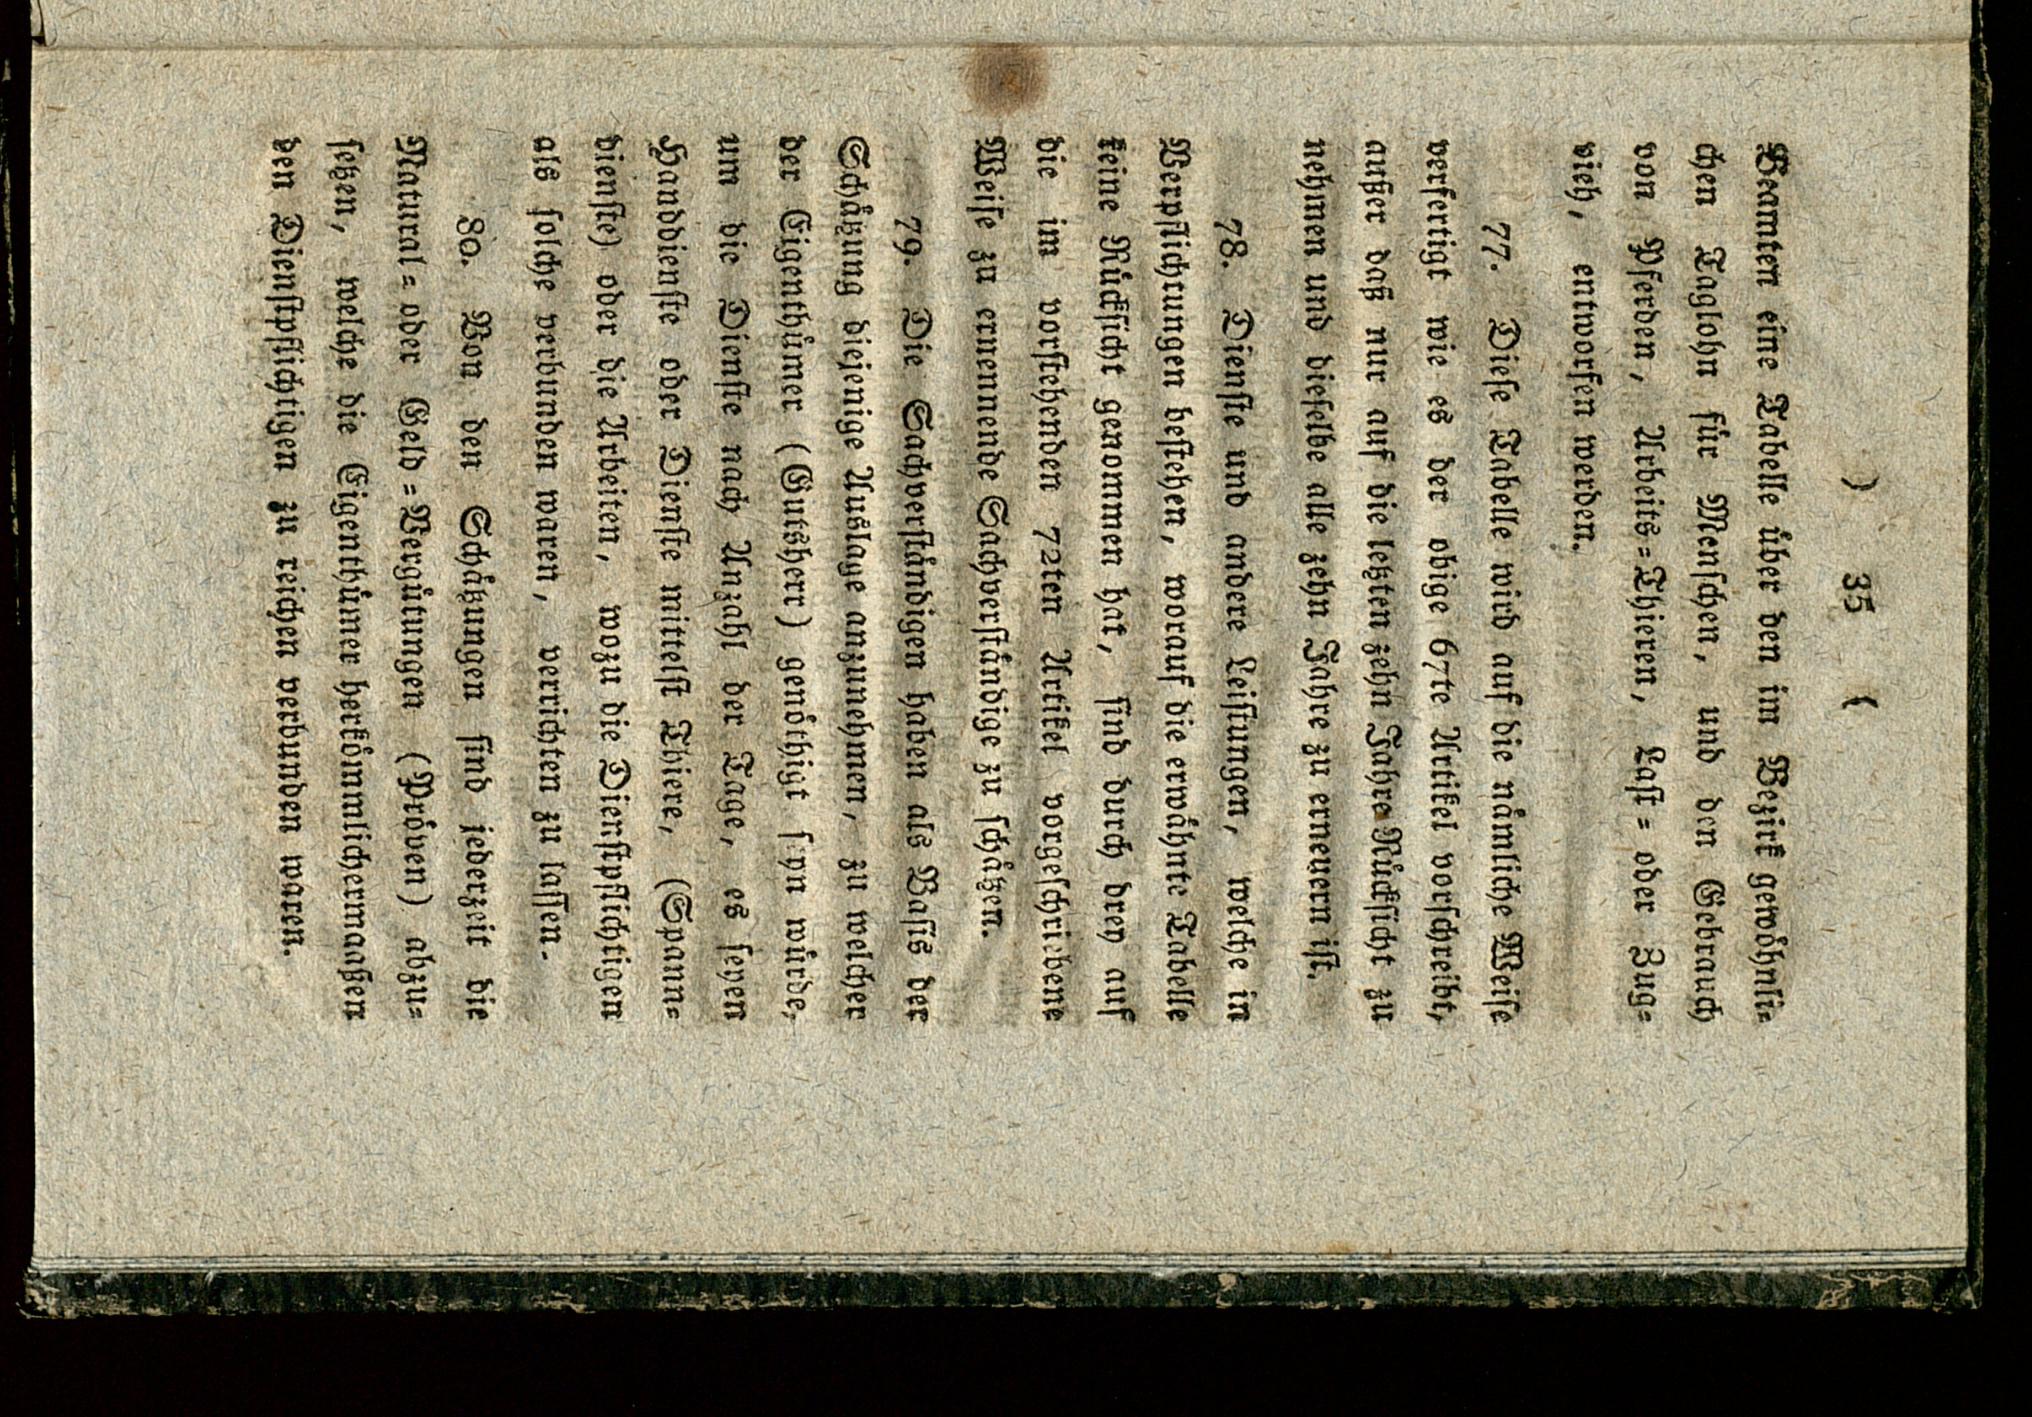 ) 35 (
Beamten eine Tabelle uͤber den im Bezirk gewoͤhnli⸗
chen Taglohn fuͤr Menschen, und den Gebrauch
von Pferden, Arbeits⸗Thieren, Last⸗ oder Zug⸗
vieh, entworfen werden.
77. Diese Tabelle wird auf die naͤmliche Weise
verfertigt wie es der obige 67te Artikel vorschreibt,
außer daß nur auf die letzten zehn Jahre Ruͤcksicht zu
nehmen und dieselbe alle zehn Jahre zu erneuern ist.
78. Dienste und andere Leistungen, welche in
Verpflichtungen bestehen, worauf die erwaͤhnte Tabelle
keine Ruͤcksicht genommen hat, sind durch drey auf
die im vorstehenden 72ten Artikel vorgeschriebene
Weise zu ernennende Sachverstaͤndige zu schaͤtzen.
79. Die Sachverstaͤndigen haben als Basis der
Schaͤtzung diejenige Auslage anzunehmen, zu welcher
der Eigenthuͤmer (Gutsherr) genoͤthigt seyn wuͤrde,
um die Dienste nach Anzahl der Tage, es seyen
Handdienste oder Dienste mittelst Thiere, (Spann⸗
dienste) oder die Arbeiten, wozu die Dienstpflichtigen
als solche verbunden waren, verrichten zu lassen.
80. Von den Schaͤtzungen sind jederzeit die
Natural⸗ oder Geld⸗Verguͤtungen (Proͤven) abzu⸗
setzen, welche die Eigenthuͤmer herkoͤmmlichermaßen
den Dienstpflichtigen zu reichen verbunden waren.